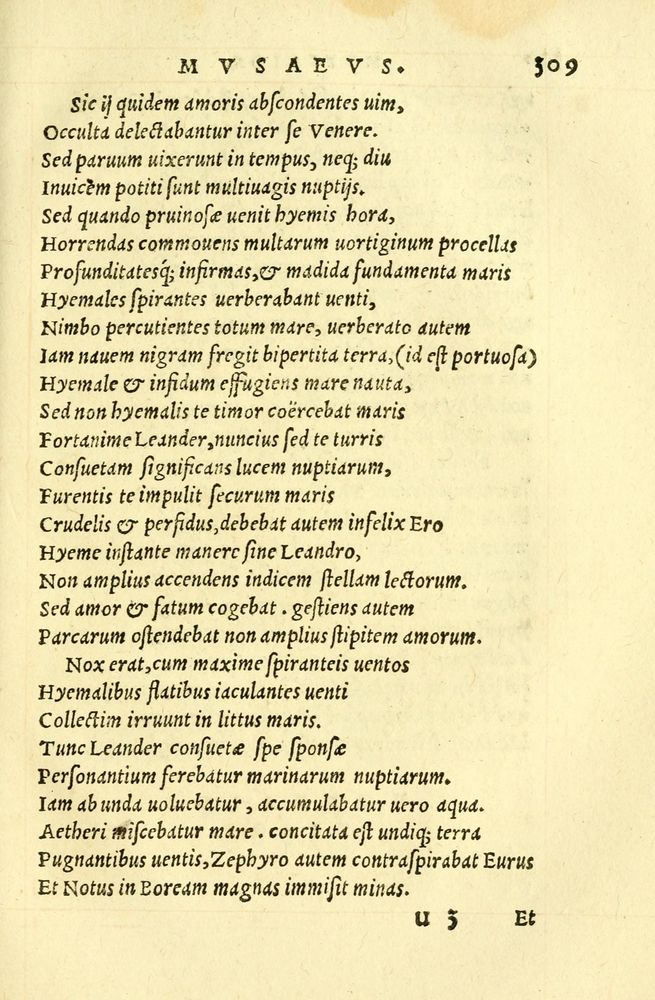 MVSAEVS. 309
Sic ij quidem amoris abſcondentes uim,
Occulta delectabantur inter ſe Venere.
Sed paruum uixerunt in tempus, neq; diu
Inuicem potiti ſunt multiuagis nuptijs.
Sed quando pruinoſæ uenit hyemis hora,
Horrendas commouens multarum uortiginum procellas
Profunditatesq́; infirmas, & madida fundamenta maris
Hyemales ſpirantes uerberabant uenti,
Nimbo percutientes totum mare, uerberato autem
Iam nauem nigram fregit bipertita terra, (id eſt portuoſa)
Hyemale & infidum effugiens mare nauta,
Sed non hyemalis te timor coërcebat maris
Fortanime Leander, nuncius ſed te turris
Conſuetam ſignificans lucem nuptiarum,
Furentis te impulit ſecurum maris
Crudelis & perfidus, debebat autem infelix Ero
Hyeme inſtante manere ſine Leandro,
Non amplius accendens indicem ſtellam lectorum.
Sed amor & fatum cogebat . geſtiens autem
Parcarum oſtendebat non amplius ſtipitem amorum.
Nox erat, cum maxime ſpiranteis uentos
Hyemalibus flatibus iaculantes uenti
Collectim irruunt in littus maris.
Tunc Leander conſuetæ ſpe ſponſæ
Perſonantium ferebatur marinarum nuptiarum.
Iam ab unda uoluebatur, accumulabatur uero aqua.
Aetheri miſcebatur mare . concitata eſt undiq; terra
Pugnantibus uentis, Zephyro autem contraſpirabat Eurus
Et Notus in Boream magnas immiſit minas.
u 3 Et